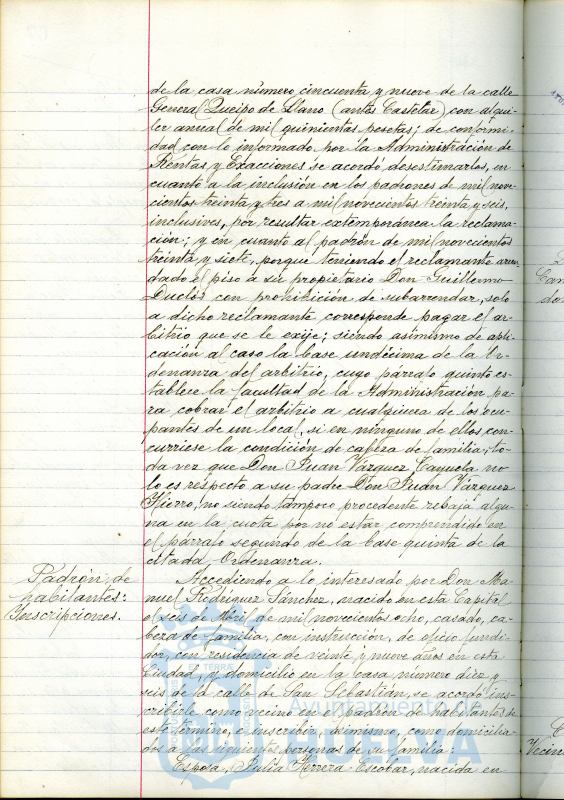 de la casa número cincuenta y nueve de la calle
General Queipo de Llano (antes Castelar) con alqui-
ler anual de mil quinientas pesetas; de conformi-
dad con lo informado por la Administración de
Rentas y Exacciones se acordó desestimarlas, en
cuanto a la inclusión en los padrones de mil nove-
cientos treinta y tres a mil novecientos treinta y seis,
inclusives, por resultar extemporánea la reclama-
ción; y en cuanto al padrón de mil novecientos
treinta y siete, porque teniendo el reclamante arren-
dado el piso a su propietario Don Guillermo
Duclós con prohibición de subarrendar, solo
a dicho reclamante corresponde pagar el ar-
bitrio que se le exije; siendo asimismo de apli-
cación al caso la base undécima de la Or-
denanza del arbitrio, cuyo párrafo quinto es-
tablece la facultad de la Administración pa-
ra cobrar el arbitrio a cualquiera de los ocu-
pantes de un local, si en ninguno de ellos con-
curriese la condición de cabeza de familia; to-
da vez que Don Juan Vázquez Cayuela no
lo es respecto a su padre Don Juan Vázquez
Hierro, no siendo tampoco procedente rebaja algu-
na en la cuota por no estar comprendido en
el párrafo segundo de la base quinta de la
citada Ordenanza.
Padrón de
habitantes:
Inscripciones.
Accediendo a lo interesado por Don Ma-
nuel Rodríguez Sánchez, nacido en esta Capital
el seis de Abril de mil novecientos ocho, casado, ca-
beza de familia, con instrucción, de oficio fundi-
dor, con residencia de veinte y nueve años en esta
Ciudad, y domicilio en la casa número diez y
seis de la calle de San Sebastián, se acordó ins-
cribirle como vecino en el padrón de habitantes de
este término, e inscribir, asimismo, como domicilia-
dos a las siguientes personas de su familia:
Esposa, Julia Herrera Escobar, nacida en
Ayuntamiento de
HUELVA